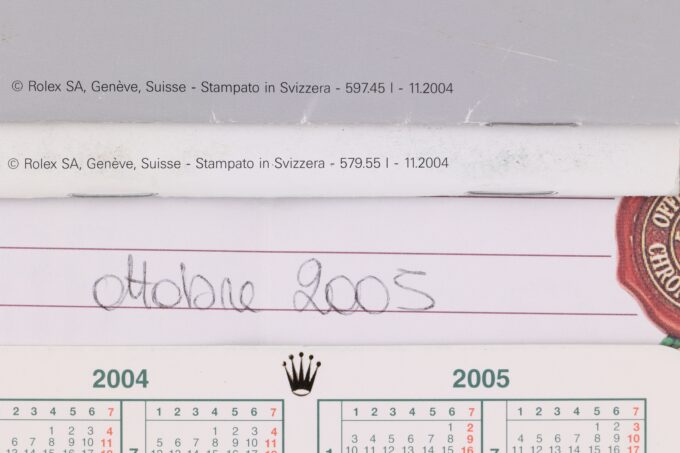 © Rolex SA, Genève, Suisse - Stampato in Svizzera - 597.45 I - 11.2004
© Rolex SA, Genève, Suisse - Stampato in Svizzera - 579.55 I - 11.2004
ottobre 2005
OFF
CHRO
2004
2005
2 3 4 5 6 7
1 2 3 4 5 6 7
1 2 3 4 5 6 7
1 2 3 4 5 6 7
1 2 3 4
1 2 3 4
1 2
1 2 3
6 7 8 9 10 11
5 6 7 8 9 10 11
3 4 5 6 7 8 9
4 5 6 7 8 9 10